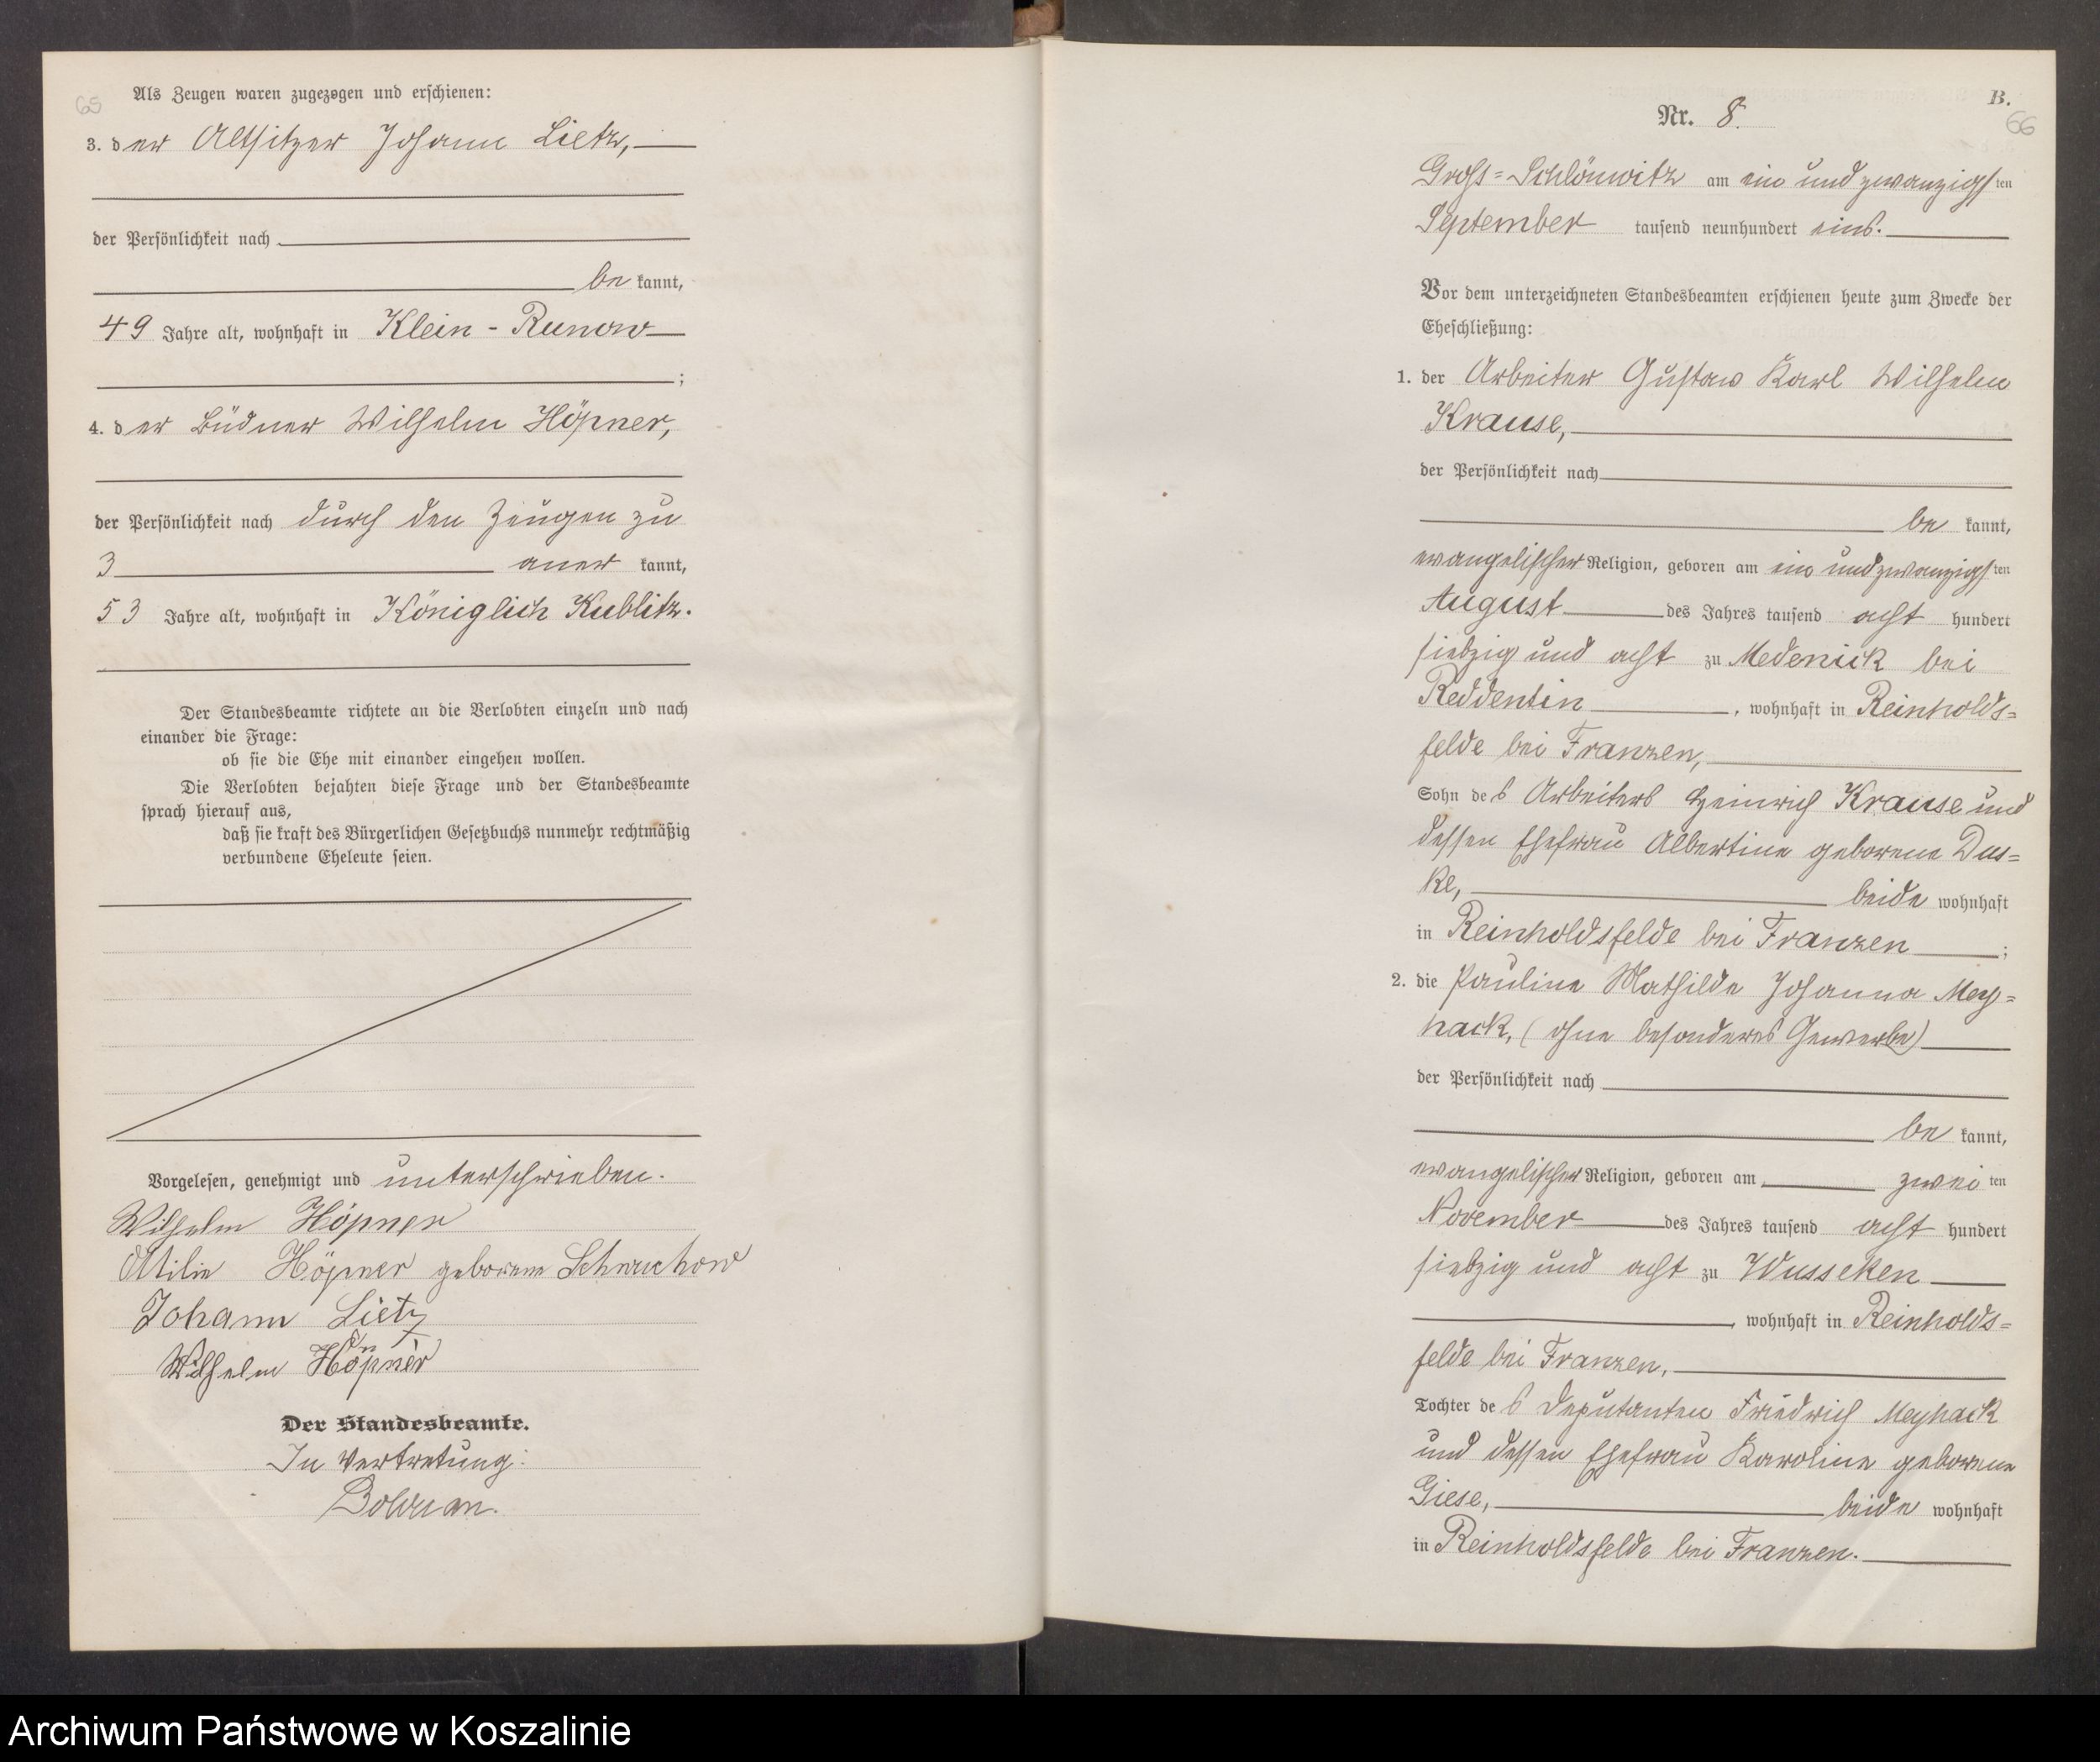 65
Als Zeugen waren zugezogen und erschienen:
3. der Altsitzer Johann Lietz,
der Persönlichkeit nach
be kannt,
49 Jahre alt, wohnhaft in Klein-Runow
;
4. der Büdner Wilhelm Höpner,
der Persönlichkeit nach durch den Zeugen zu
3 aner kannt,
53 Jahre alt, wohnhaft in Königlich Kublitz.
Der Standesbeamte richtete an die Verlobten einzeln und nach
einander die Frage:
ob sie die Ehe mit einander eingehen wollen.
Die Verlobten bejahten diese Frage und der Standesbeamte
sprach hierauf aus,
daß sie kraft des Bürgerlichen Gesetzbuchs nunmehr rechtmäßig
verbundene Eheleute seien.
Vorgelesen, genehmigt und unterschrieben.
Wilhelm Höpner
Höpner geborene
Johann Lietz
Wilhelm Höpner
Der Standesbeamte.
In Vertretung:
B.
66
Nr. 8.
Gross=Schlönwitz am ein und zwanzigsten
September tausend neunhundert eins.
Vor dem unterzeichneten Standesbeamten erschienen heute zum Zwecke der
Eheschließung:
1. der Arbeiter Gustav Karl Wilhelm
Krause,
der Persönlichkeit nach
be kannt,
evangelischer Religion, geboren am ein und zwanzigsten
August des Jahres tausend acht hundert
siebzig und acht zu Medenick bei
Reddentin, wohnhaft in Reinholds=
felde bei Franzen,
Sohn des Arbeiters Heinrich Krause und
dessen Ehefrau Albertine geborene Dus=
ke, beide wohnhaft
in Reinholdsfelde bei Franzen;
2. die Pauline Mathilde Johanna Mey=
hack, (ohne besonderes Gewerbe)
der Persönlichkeit nach
be kannt,
evangelischer Religion, geboren am zwei ten
November des Jahres tausend acht hundert
siebzig und acht zu Wusseken
, wohnhaft in Reinholds=
felde bei Franzen,
Tochter des Deputanten Friedrich Meyhack
und dessen Ehefrau Karoline geborene
Giese, beide wohnhaft
in Reinholdsfelde bei Franzen.
Archiwum Państwowe w Koszalinie